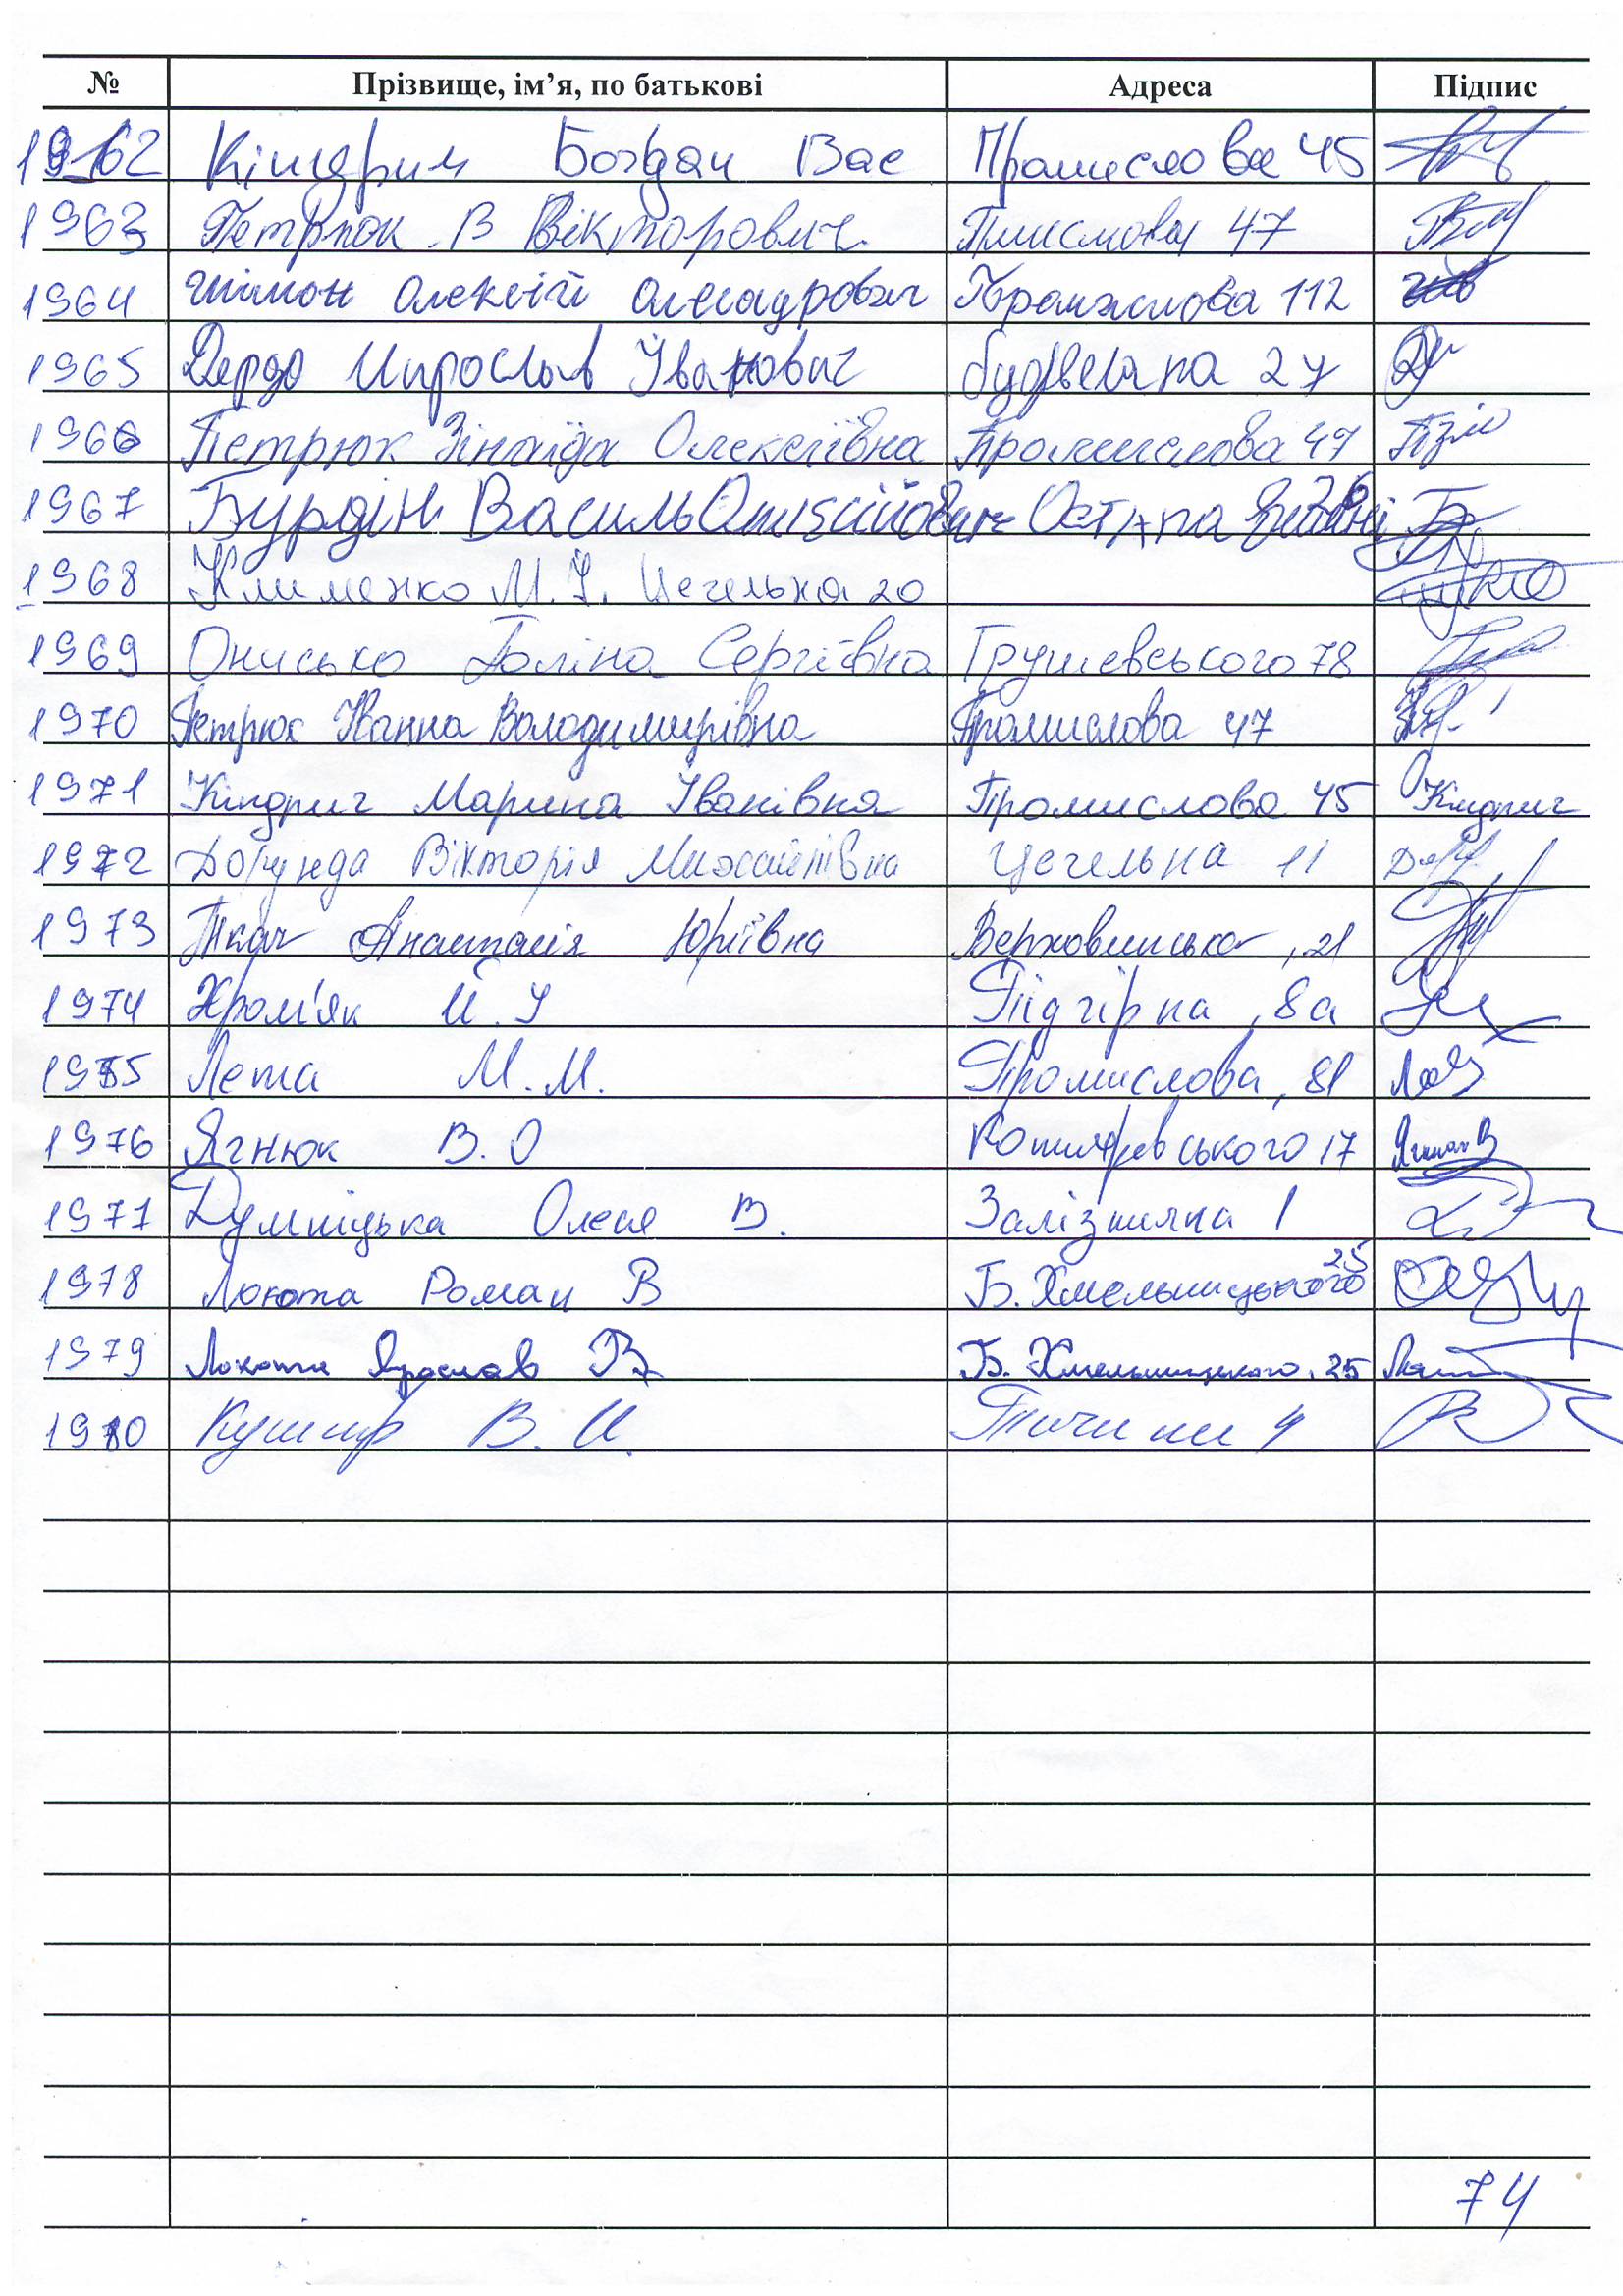 № Прізвище, ім’я, по батькові Адреса Підпис
1962 Богдан Вас Промислова 45
1963 Петрюк В Вікторович 47
1964 Шімон Олексій 112
1965 Дердо Мирослав Іванович 27
1966 Петрюк Зінаїда Олексіївна Промислова 47
1967 Бурдін Василь Остапа
1968 Клименко М.І. Цегельна 20
1969 Онисько Галіна Сергіївна Грушевського 78
1970 Петрюк Іванна Володимирівна Промислова 47
1971 Кіндрич Марина Іванівна Промислова 45
1972 Вікторія Михайлівна Цегельна 11
1973 Ткач Анастасія Юріївна 21
1974 Хром'як Й.І Підгірна, 8а
1975 Лета М.М. Промислова, 81
1976 Ягнюк В.О 17
1977 Думніцька Олеся В. Залізнична 1
1978 Локота Роман В Б. Хмельницького 25
1979 Локота Ярослав В Б. Хмельницького, 25
1980 Кушнір В.И. Тичини 4
74